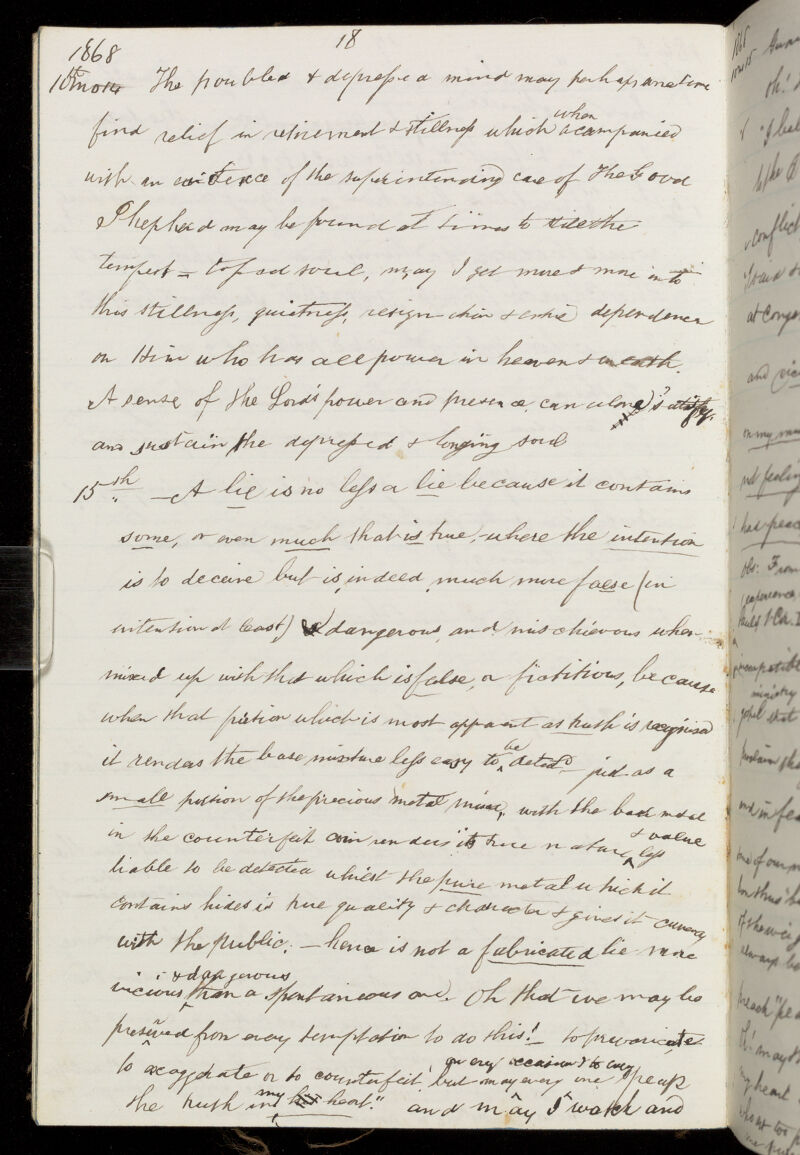 18
1868
10th mo 14 The troubled & depressed mind may perhaps sometime
find relief in retirement & stillness which when accompanied
with an evidence of the superintending care of The Good
Shepherd may be found at times to still the
tempest – tossed soul, may I get more & more into
this stillness, quietness, resignation & entire dependence
on Him who has all power in heaven & in earth.
A sense of the Lord's power and presence can alone satisfy
and sustain the depressed & longing soul
15th – A lie is no less a lie because it contains
some, or even much that is true, where the intention
is to deceive but is, indeed, much more false (in
intention at least) & dangerous, and mischievous when
mixed up with that which is false, or fictitious, because
when that portion which is most apparent as truth is recognised
it renders the base mixture less easy to be detected just as a
small portion of the precious metal mixed, with the base metal
in the counterfeit coin renders its true nature & value less
liable to be detected whilst the pure metal which it
contains hides its true quality & character & gives it currency
with the public. – hence is not a fabricated lie more
vicious & dangerous than a spontaneous one. Oh that we may be
preserved from every temptation to do this! – to prevaricate
to exaggerate or to counterfeit! but may every one on every occasion speak
the truth in my heart." and may I watch and